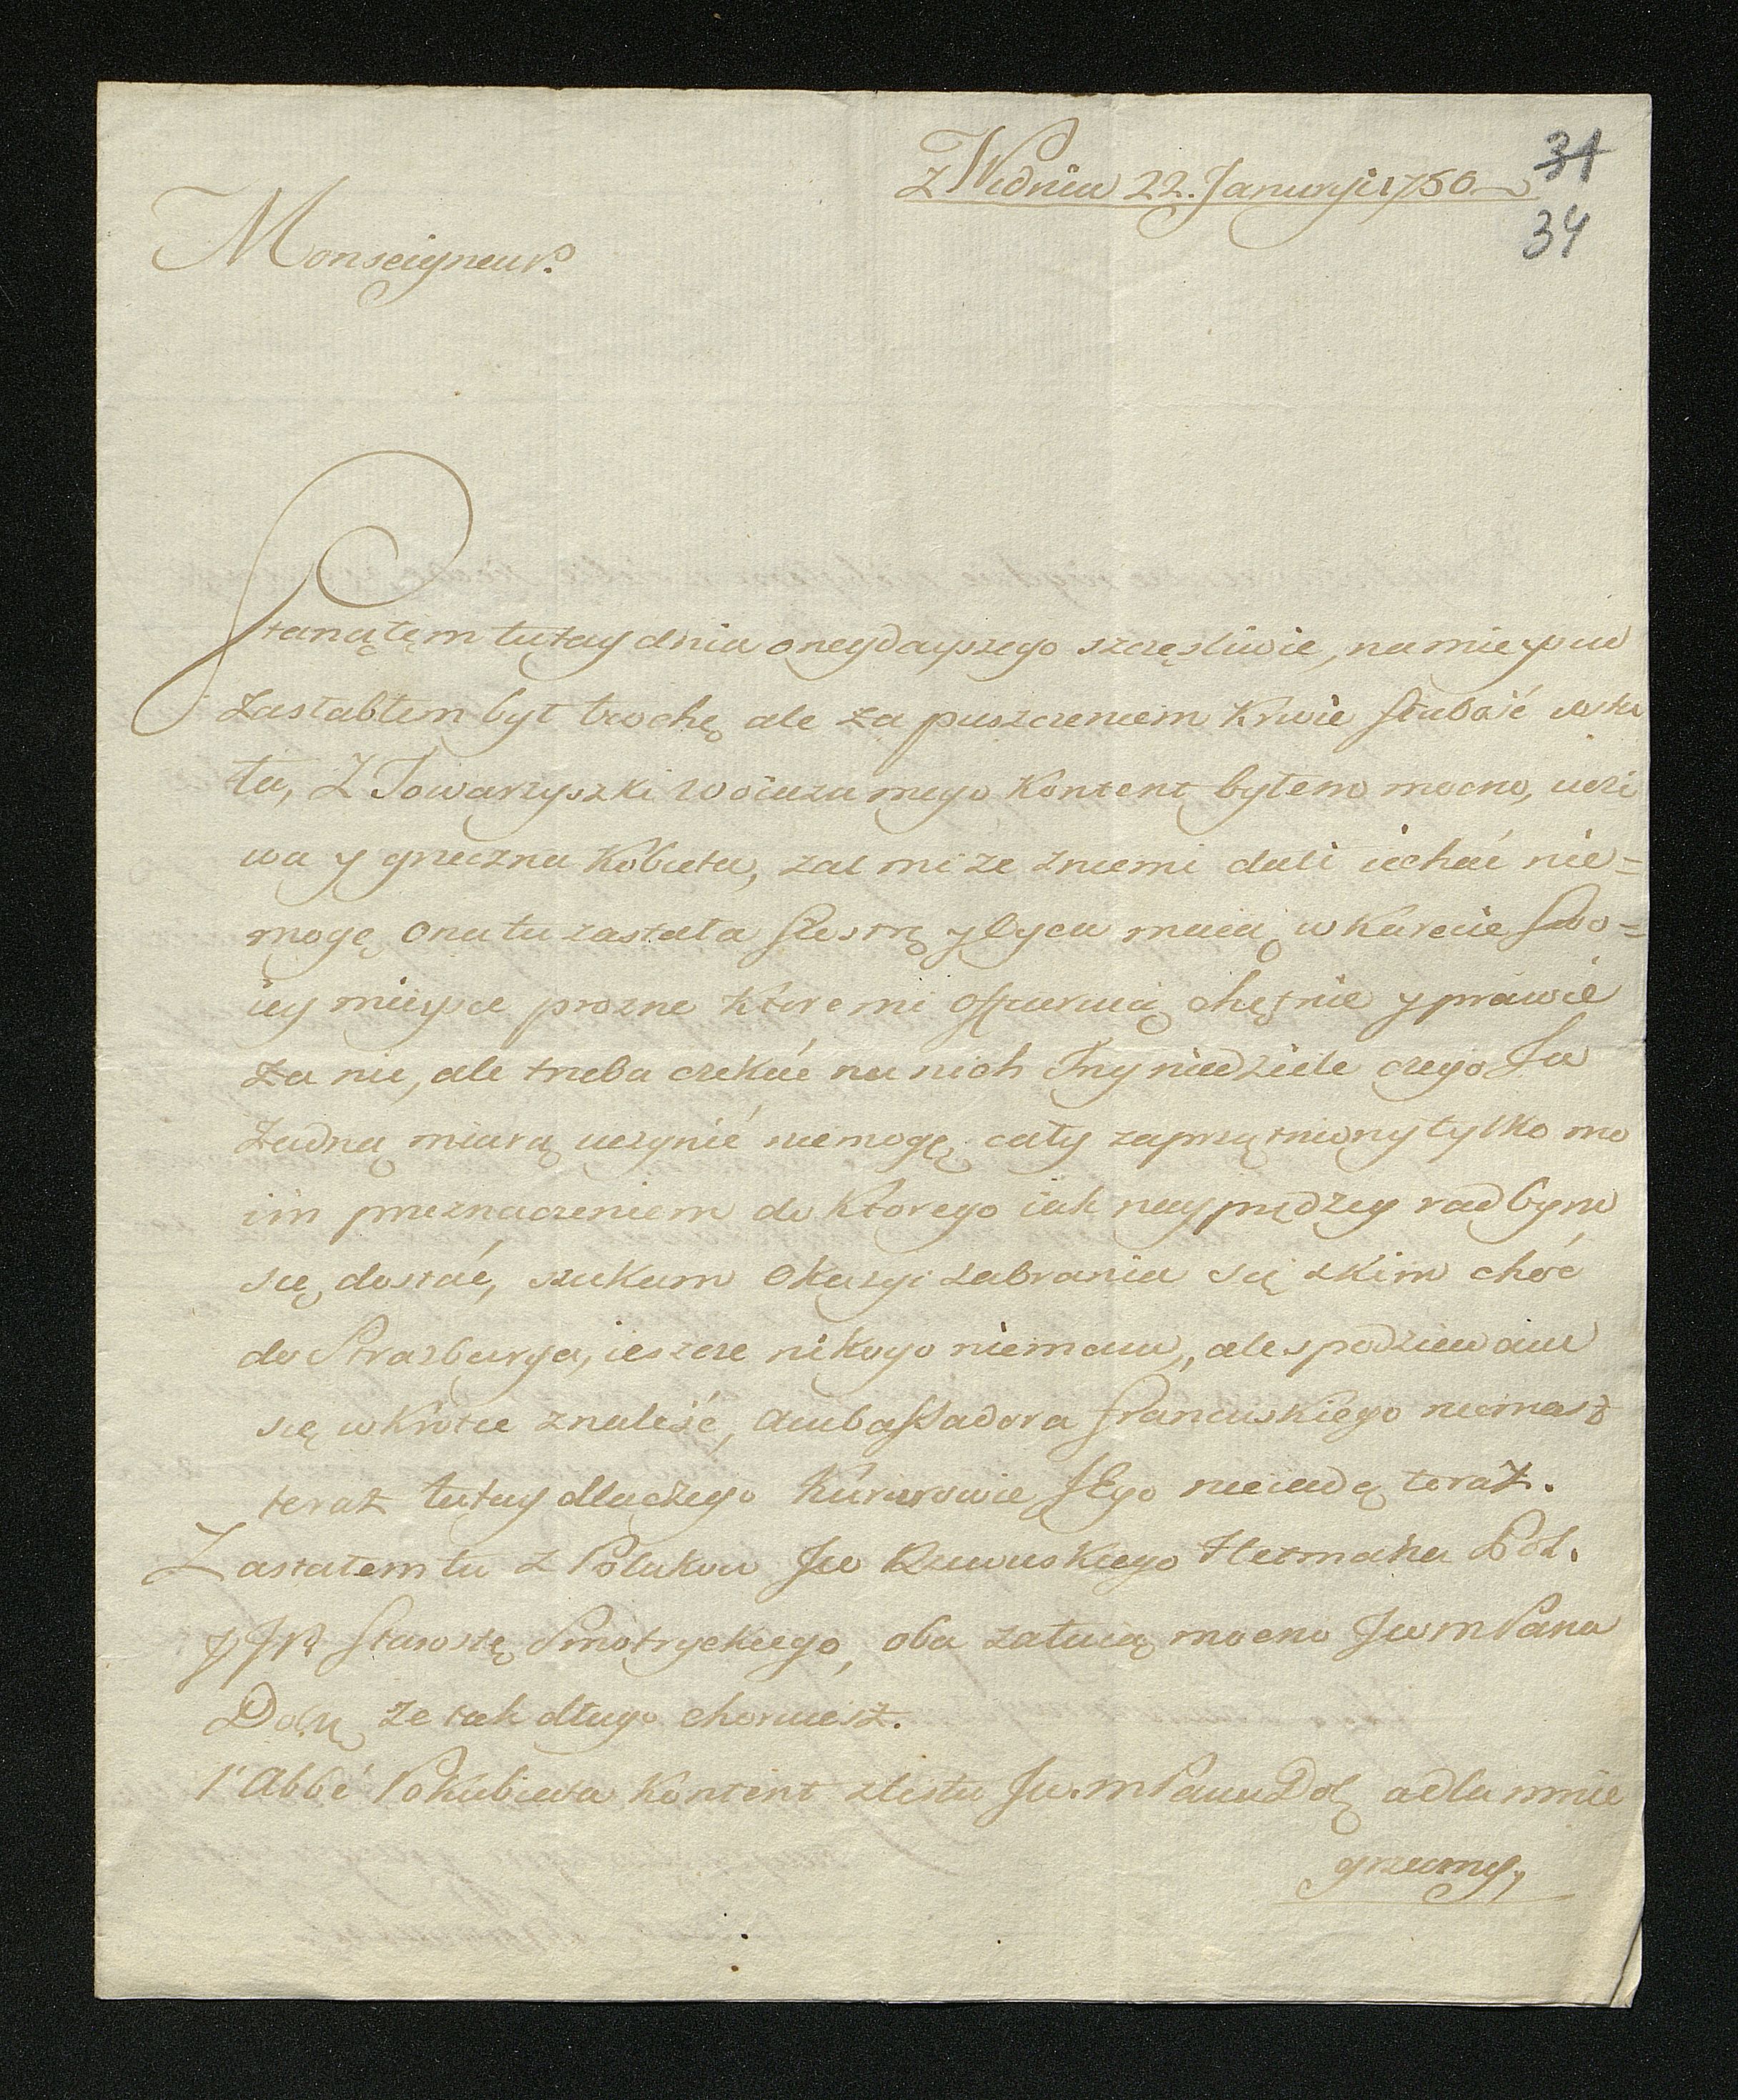 Z Widnia 22. Januarji 1760
31
34
Monseigneur.
Stanąłęm tutay dnia oneydayszego szczęsliwie, na mieyscu
Zasłabłem był trochę ale za puszczeniem Krwie słabość usta
ła, Z Towarzyszki Woiazu mego Kontent byłem mocno, uczi
wa y grzeczna Kobieta, zal mi ze z niemi dali iechać nie=
mogę Ona tu zastała siostrę y Oyca maią w Karecie swo=
iey mieysce prozne Ktore mi offiaruią chętnie y prawie
za nic, ale trzeba czekać na nich Trzy niedziele czego Ja
Zadną miarą uczynić niemogę cały zaprzątniony tylko mo
im przeznaczeniem do Ktorego iak nayprędzey rad bym
się dostać, szukam Okazyi zabrania się z kim choć
do Strazburga, ieszcze nikogo niemam, ale spodziewam
się w Krotce znaleść, Ambassadora francuskiego niemasz
teraz tutay dlaczego Kurierowie JEgo nieiadą teraz.
Zastałem tu z Polakow Jw Rzewuskiego Hetmana Pol.
y JP. Starostę Smotryckiego, oba załuią mocno JwmPana
Dobr. ze tak długo choruiesz.
l'Abbé Pokubiata Kontent z listu Jw.mPana Dob. a dla mnie
grzeczny,